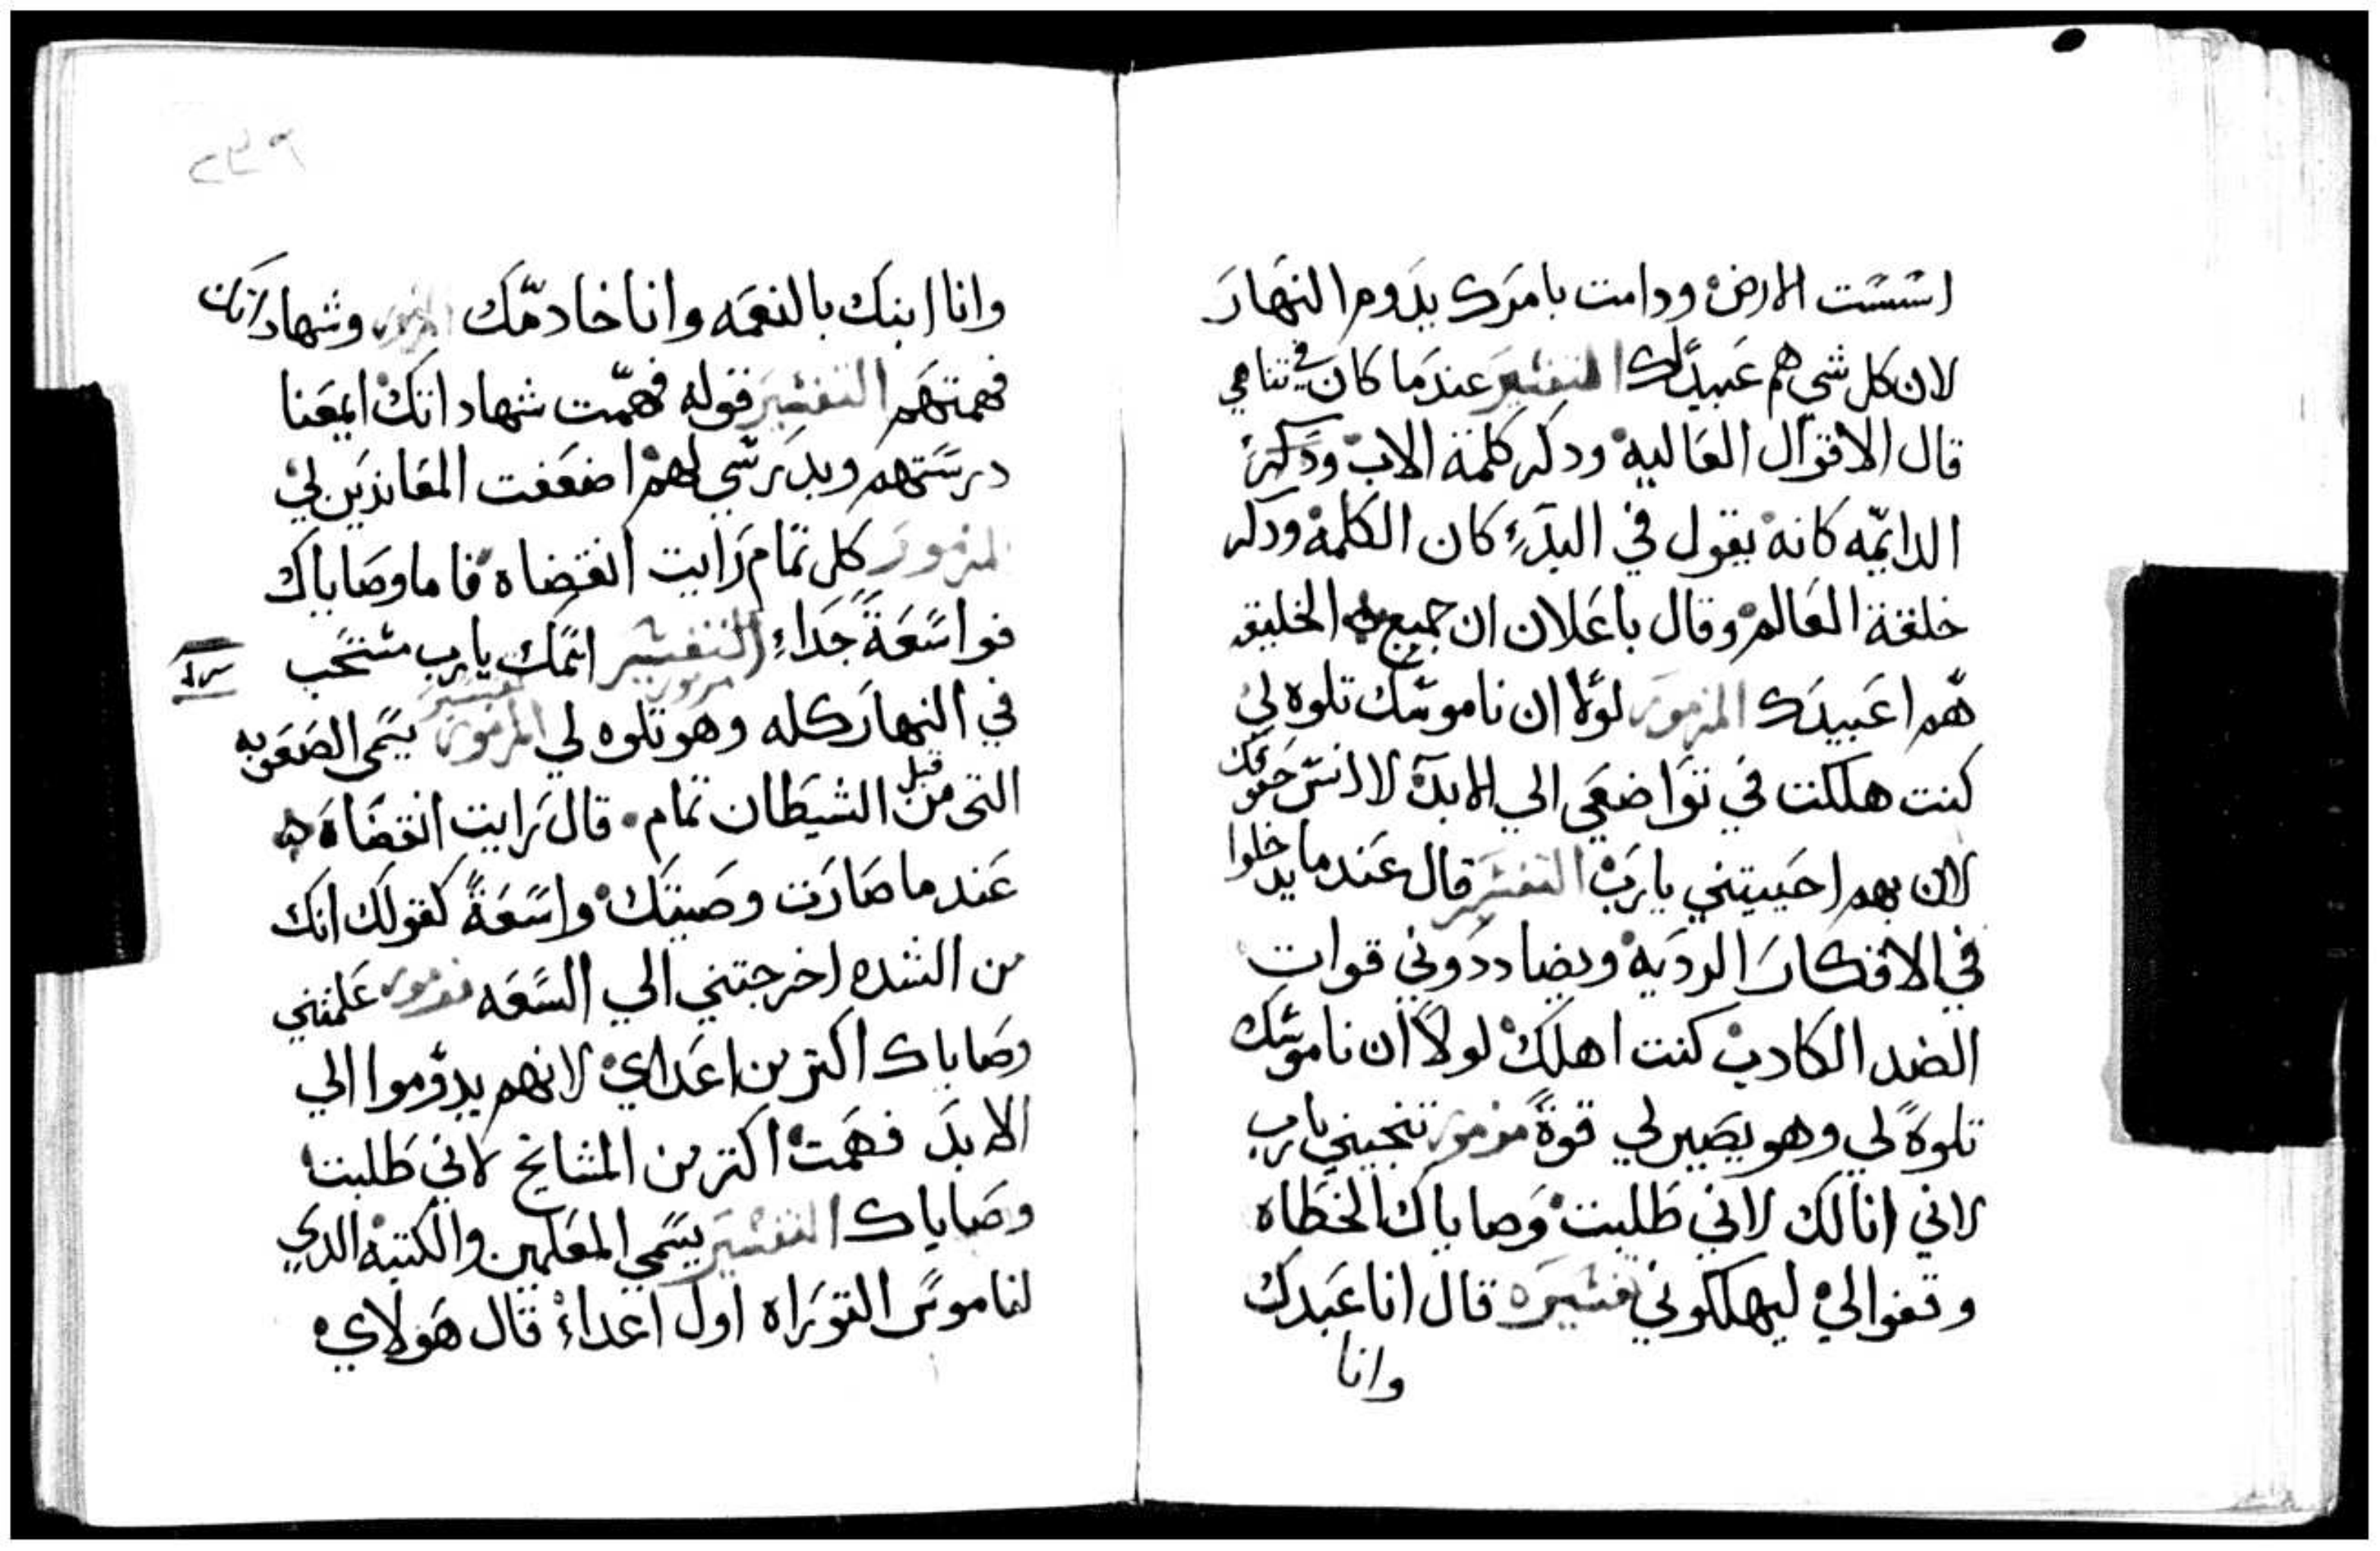 اسست الارض ودامت بامرك يدوم النهار
لان كل شي هم عبيدك التفسير عندما كان في تناهي
قال الاقوال العالية ودكر كلمة الاب ودكر
الدايمه كانه يقول في البدء كان الكلمة ودكر
خلقة العالم وقال باعلان ان جميع الخليقه
هم اعبيدك المزمور لولا ان ناموسك تلوه لي
كنت هلكت في تواضعي الي الابد لا انس حقوقك
لان بهم احييتني يارب التفسير قال عندما يدخلوا
في الافكار الرديه ويضاددوني قوات
الضد الكادب كنت اهلك لولا ان ناموسك
تلوة لي وهو يصير لي قوة مزمور تنجيني يارب
لاني انا لك لاني طلبت وصاياك الخطاه
وقفوا لي ليهلكوني تفسيره قال انا عبدك
وانا
٢٣٩
وانا ابنك بالنعمه وانا خادمك المزمور وشهاداتك
فهمتهم التفسير قوله فهمت شهاداتك ايمعنا
درستهم وبدرسي لهم اضعفت المعاندين لي
المزمور كل تمام رايت انقضاه فاما وصاياك
فواسعة جداء التفسير اسمك يارب منتخب
في النهار كله وهو تلوه لي المزمور مزمور تفسير يسمي الصعوبه
التي من قبل الشيطان تمام قال رايت انقضاه
عندما صارت وصيتك واسعة كقولك انك
من الشده اخرجتني الي السعه مزمور علمتني
وصاياك اكتر من اعداي لانهم يدوموا الي
الابد فهمت اكتر من المشايخ لاني طلبت
وصاياك التفسير يسمي المعلمين والكتبه الدي
لناموس التوراه اول اعداء قال هولاي